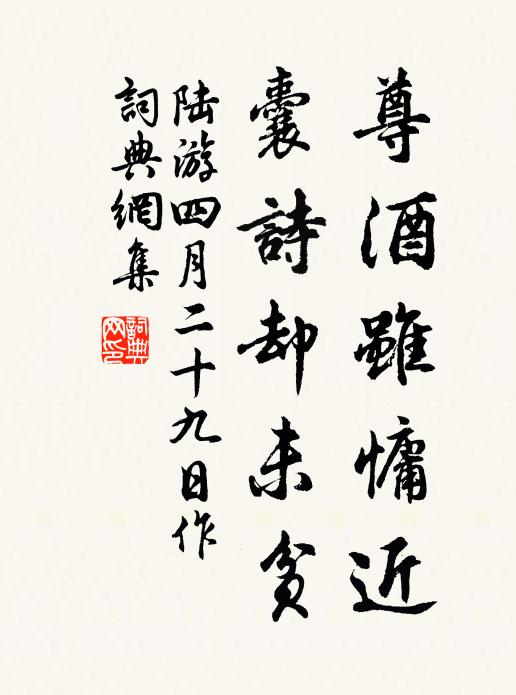 尊酒雖慵近
囊詩却未貧
陆游四月二十九日作
詞典網集
詞典网印